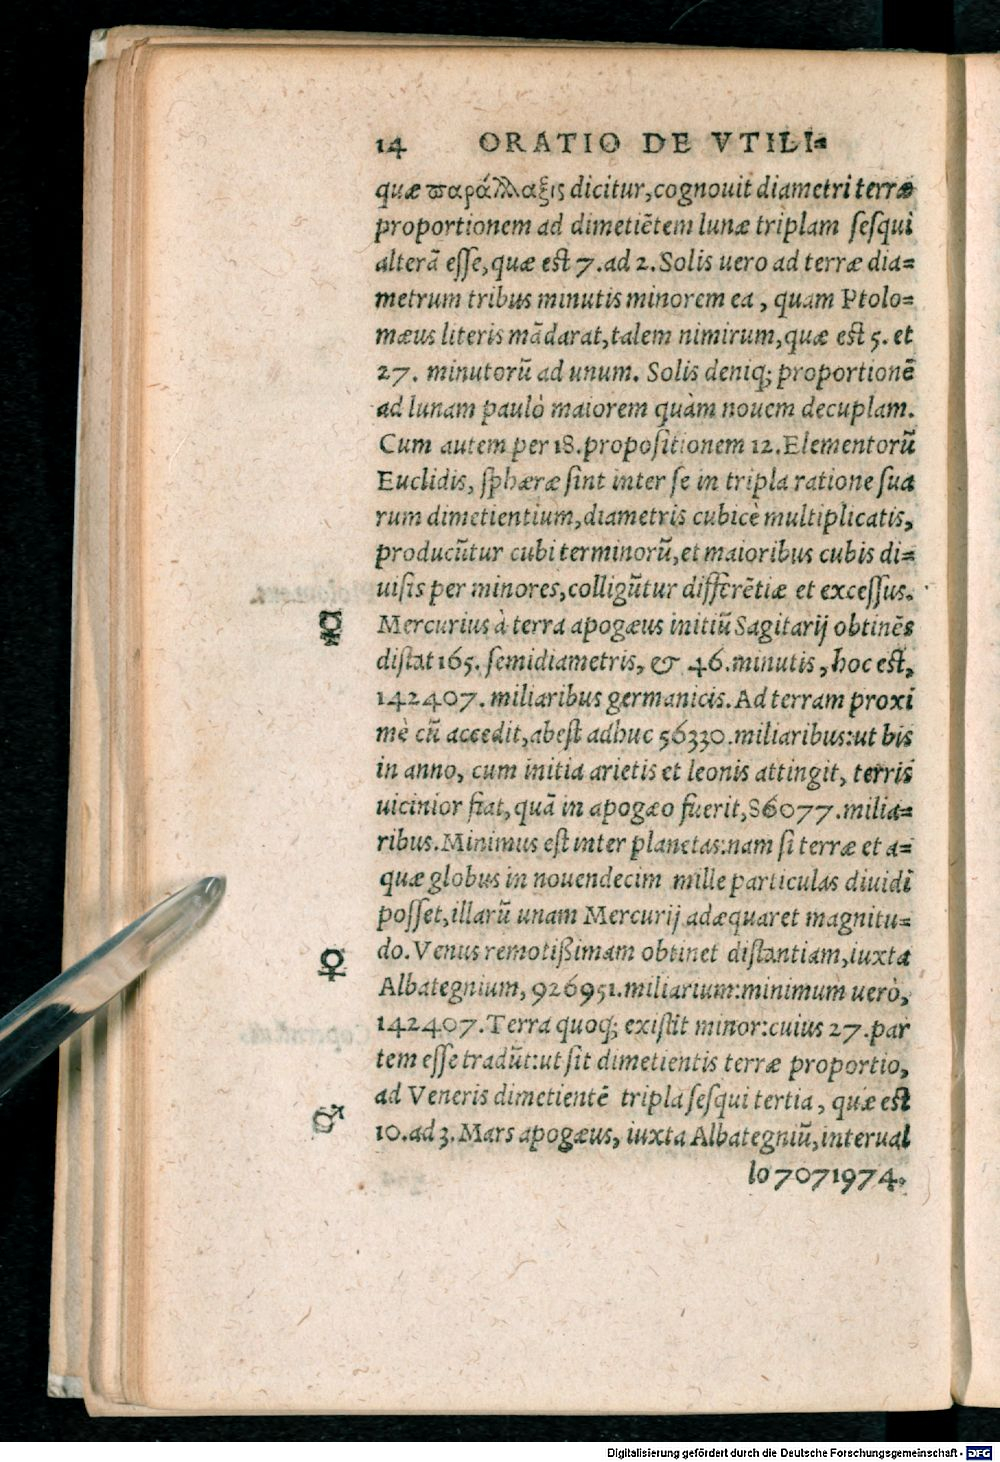 14 ORATIO DE VTILI=
quæ παράλλαξις dicitur, cognouit diametri terræ
proportionem ad dimetiẽtem lunæ triplam ſeſqui
alterã eſſe, quæ eſt 7. ad 2. Solis uero ad terræ dia=
metrum tribus minutis minorem ea, quam Ptolo=
mæus literis mãdarat, talem nimirum, quæ eſt 5. et
27. minutorũ ad unum. Solis deniq; proportionẽ
ad lunam paulò maiorem quàm nouem decuplam.
Cum autem per 18. propoſitionem 12. Elementorũ
Euclidis, ſphæræ ſint inter ſe in tripla ratione ſua
rum dimetientium, diametris cubicè multiplicatis,
producũtur cubi terminorũ, et maioribus cubis di=
uiſis per minores, colligũtur differẽtiæ et exceſſus.
☿ Mercurius à terra apogæus initiũ Sagitarij obtinẽs
diſtat 165. ſemidiametris, & 46. minutis, hoc eſt,
142407. miliaribus germanicis. Ad terram proxi
mè cũ accedit, abeſt adhuc 56330. miliaribus: ut bis
in anno, cum initia arietis et leonis attingit, terris
uicinior fiat, quã in apogæo fuerit, 86077. milia=
ribus. Minimus eſt inter planetas: nam ſi terræ et a=
quæ globus in nouendecim mille particulas diuidi
poſſet, illarũ unam Mercurij adæquaret magnitu=
♀ do. Venus remotißimam obtinet diſtantiam, iuxta
Albategnium, 926951. miliarium: minimum uerò,
142407. Terra quoq; exiſtit minor: cuius 27. par
tem eſſe tradũt: ut ſit dimetientis terræ proportio,
ad Veneris dimetientẽ tripla ſeſqui tertia, quæ eſt
♂ 10. ad 3. Mars apogæus, iuxta Albategniũ, interual
lo 7071974.
Digitalisierung gefördert durch die Deutsche Forschungsgemeinschaft - DFG